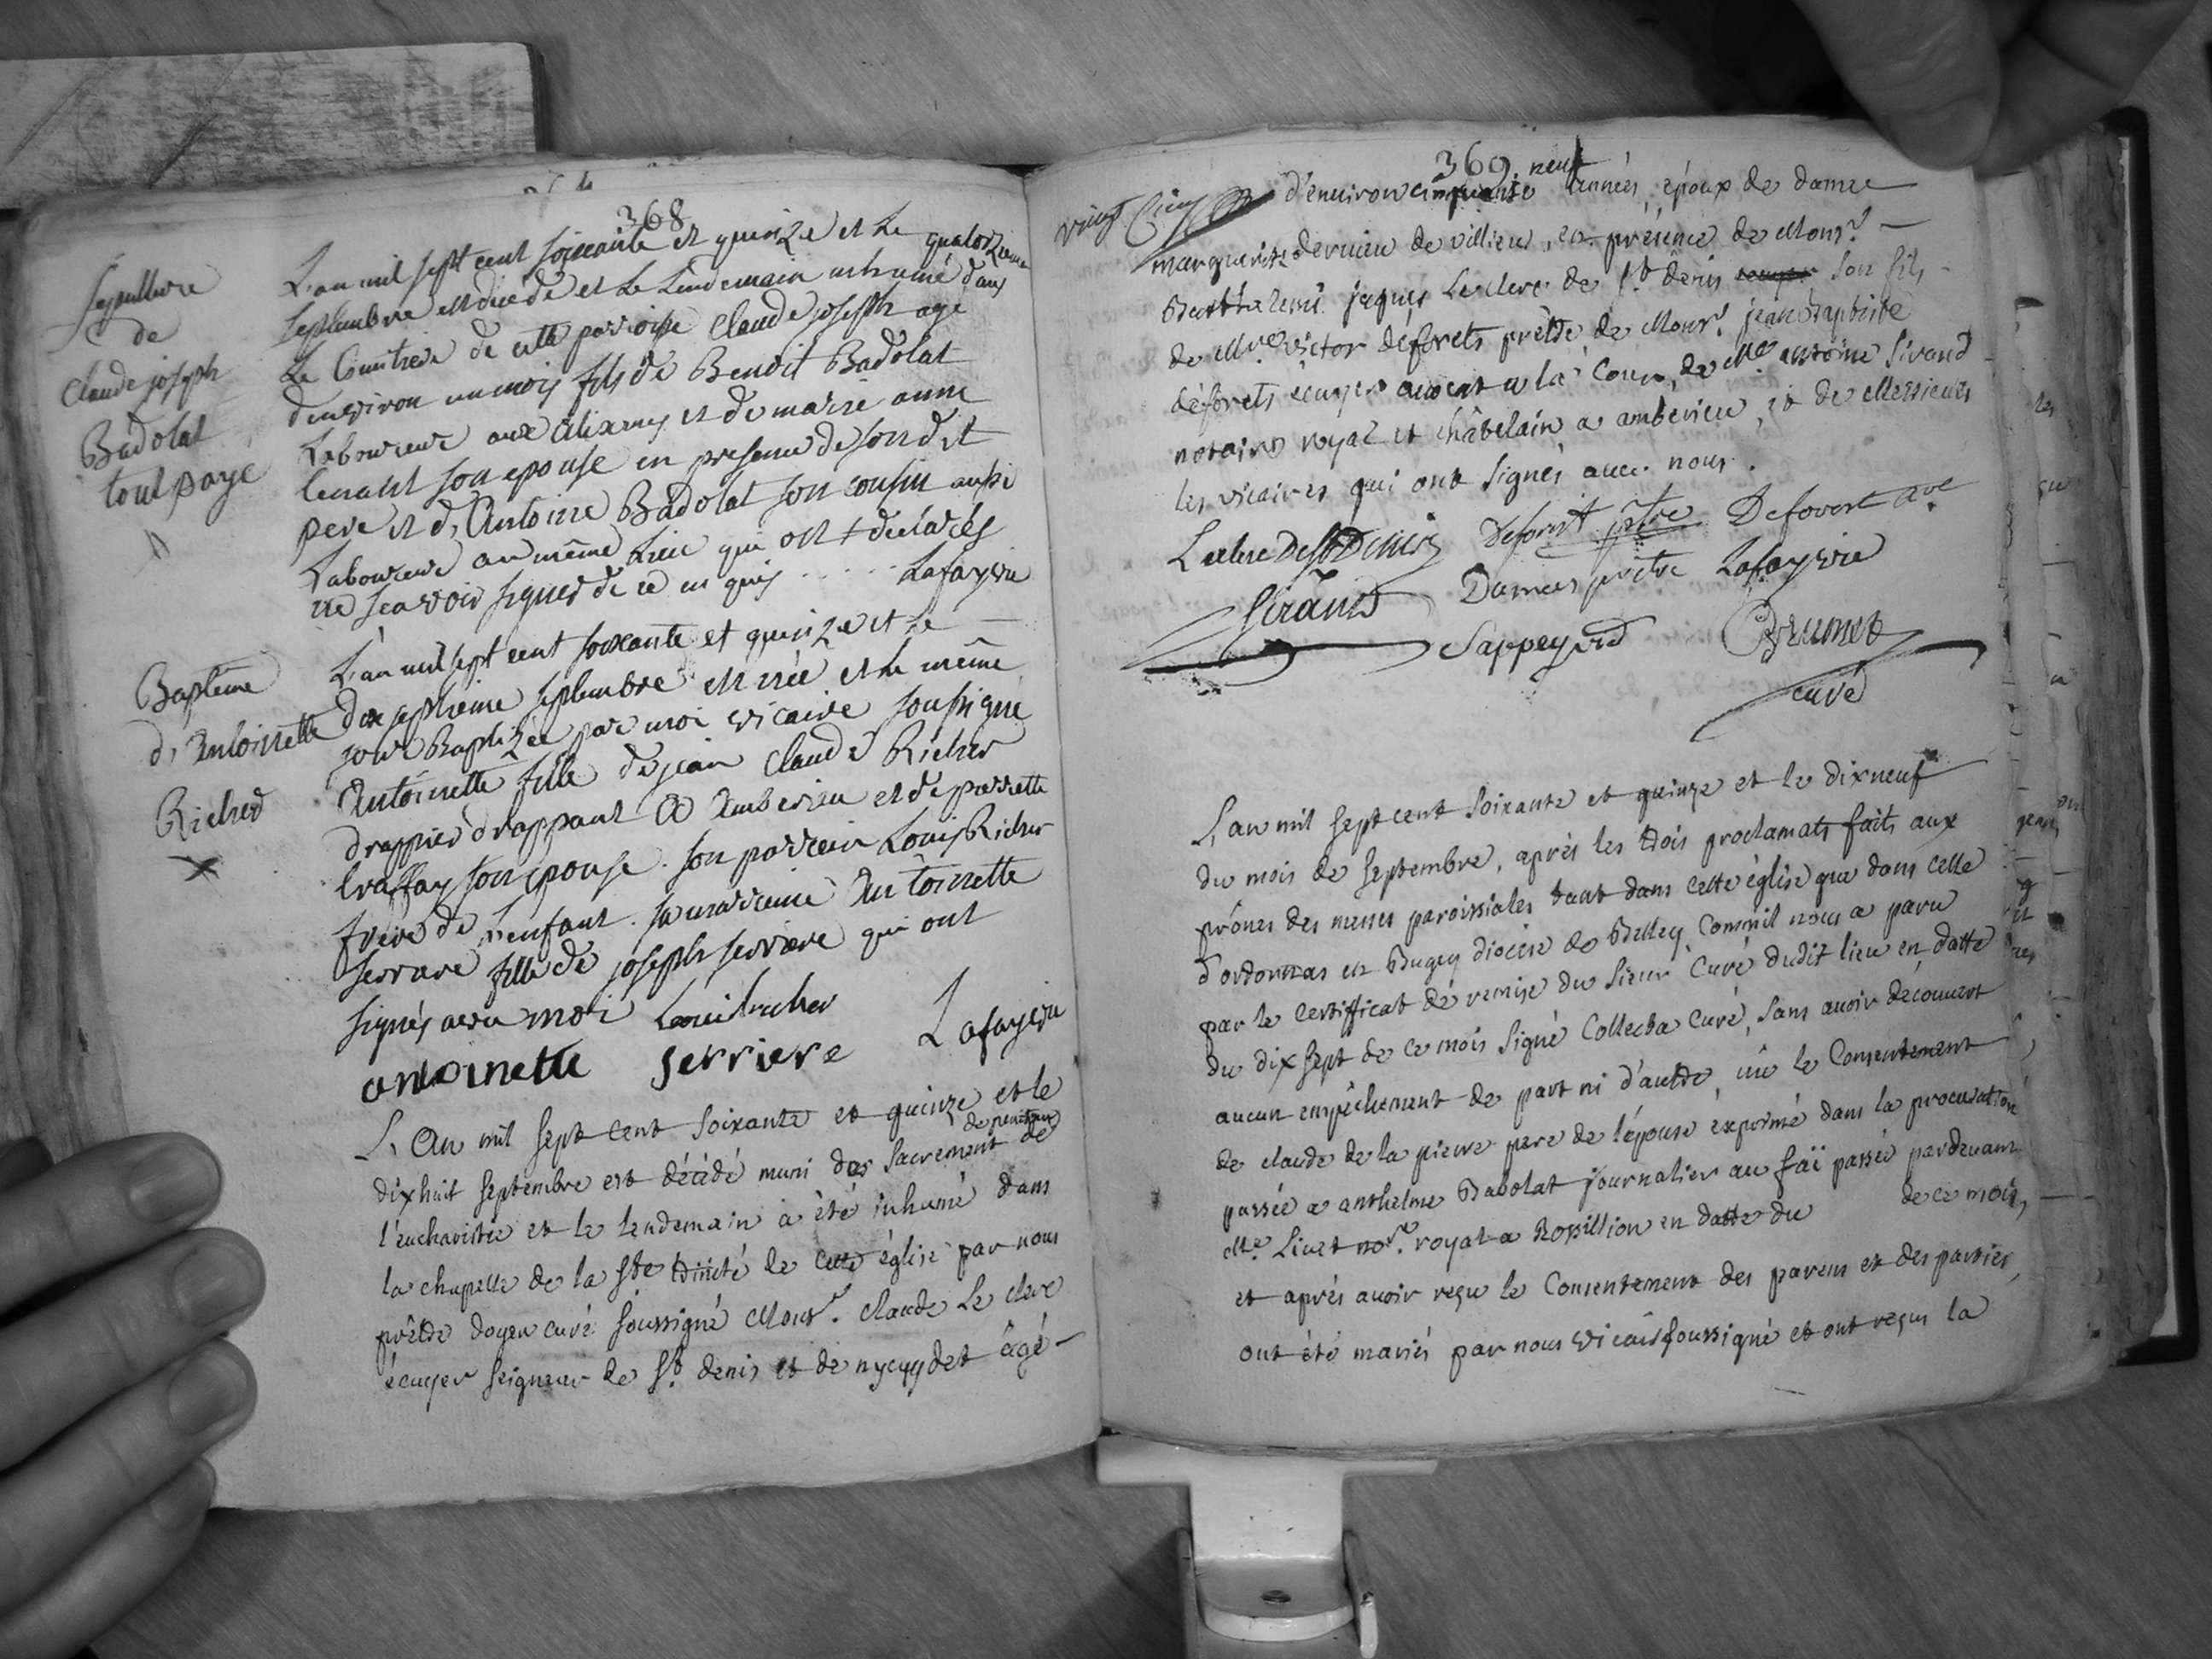 368
Sepulture
de
Claude joseph
Badolat
tout paye
L'an mil sept cent soixante et quinze et le quatorzieme
septembre est décédé et le lendemain inhumé dans
le Cimitiere de cette parroisse Claude joseph age
d'environ un mois fils de Benoit Badolat
Laboureur aux alixmys et de marie anne
tenant son epouse en presence de son dit
pere et d'Antoine Badolat son cousin aussi
Laboureur au même Lieu qui ont declarés
ne scavoir signer de ce en quis ..... Lafayvre
Baptême
d'Antoinette
Richer
L'an mil sept cent soixante et quinze et le
dix septieme septembre est née et le même
jour Baptizée par moi vicaire soussigné
Antoinette fille de jean Claude Richer
drappier drappant a Amberieu et de pierrette
traffay son epouse. son parrein Louis Richer
frere de l'enfant. sa marreine Antoinette
serriere fille de joseph serriere qui ont
signés avec moi Louis richer
antoinette serriere Lafayvre
L'An mil sept cent soixante et quinze et le
dixhuit septembre est décédé muni des sacrement de
de penitence
l'eucharistie et le lendemain a été inhumé dans
la chapelle de la ste trinité de cette église par nous
prêtre doyen curé soussigné Monsr. claude Le clerc
écuyer seigneur de st. denis et de nycuydet âgé
369
vingt cinq
d'environ cinquante neuf années, époux de dame
marguerite dervieu de villieu, en présence de Monsr.
Barthelemi jaques Leclerc de st. denis son fils
de Mre victor déforets prêtre de Monsr. jean Baptiste
déforets écuyer avocat a la Cour, de Me. antoine sirand
notaire royal et châtelain a amberieu, et de Messieurs
les vicaires qui ont signés avec nous.
Leclerc De St Denis Deforest ptre Deforest ave
Sirand Dumas pretre Lafayvre
Sappey vic Brunet
curé
L'an mil sept cent soixante et quinze et le dixneuf
du mois de septembre, après les trois proclamats faits aux
prônes des messes paroissiales tant dans cette église que dans celle
d'ordonnas en Bugey diocèse de Belley, Comm'il nous a paru
par le certifficat de remise du sieur Curé dudit lieu en datte
du dix sept de ce mois signé Collecta Curé, sans avoir découvert
aucun empêchement de part ni d'autre, vû le Consentement
de claude de la pierre pere de l'épouse exprimé dans la procuration
passée a anthelme Badolat journalier au faï passée pardevant
Me. Livet nore. royal a Rossillion en datte du de ce mois,
et aprés avoir reçu le Consentement des parens et des parties,
ont été mariés par nous vicair soussigné et ont reçus la